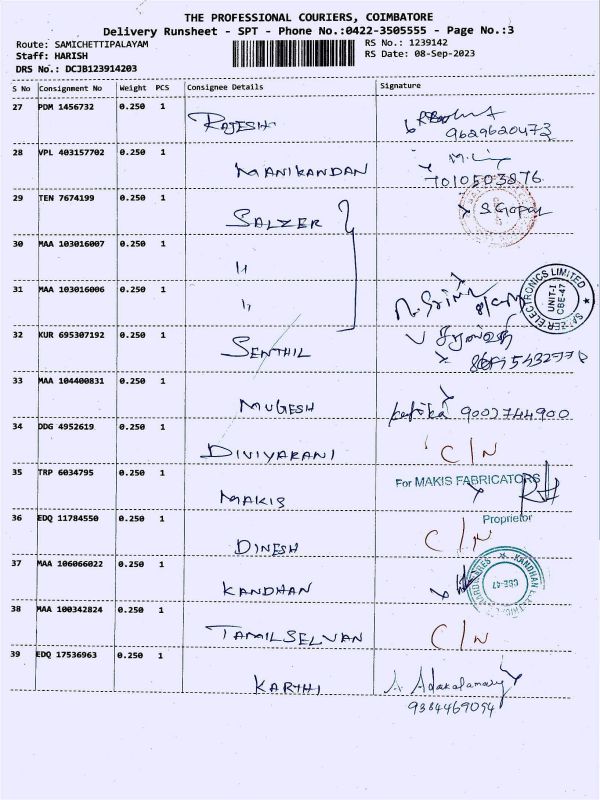 THE PROFESSIONAL COURIERS, COIMBATORE
Delivery Runsheet - SPT - Phone No.:0422-3505555 - Page No.:3
Route: SAMICHETTIPALAYAM
Staff: HARISH
DRS No.: DCJB123914203
RS No.: 1239142
RS Date: 08-Sep-2023
S No Consignment No Weight PCS Consignee Details Signature
27 PDM 1456732 0.250 1 RAJESH
9629620473
28 VPL 403157702 0.250 1 MANIKANDAN
7010503876
29 TEN 7674199 0.250 1 SALZER S Gopal
30 MAA 103016007 0.250 1 "
31 MAA 103016006 0.250 1 "
SALZER ELECTRONICS LIMITED
UNIT-I
CBE-47
32 KUR 695307192 0.250 1 SENTHIL
33 MAA 104400831 0.250 1 MUGESH
9002744900
34 DDG 4952619 0.250 1 DIVIYARANI C/N
35 TRP 6034795 0.250 1 MAKIS
For MAKIS FABRICATORS
Proprietor
36 EDQ 11784550 0.250 1 DINESH C/N
37 MAA 106066022 0.250 1 KANDHAN
KANDHAN
CBE-47
38 MAA 100342824 0.250 1 TAMILSELVAN C/N
39 EDQ 17536963 0.250 1 KARTHI
9384469094